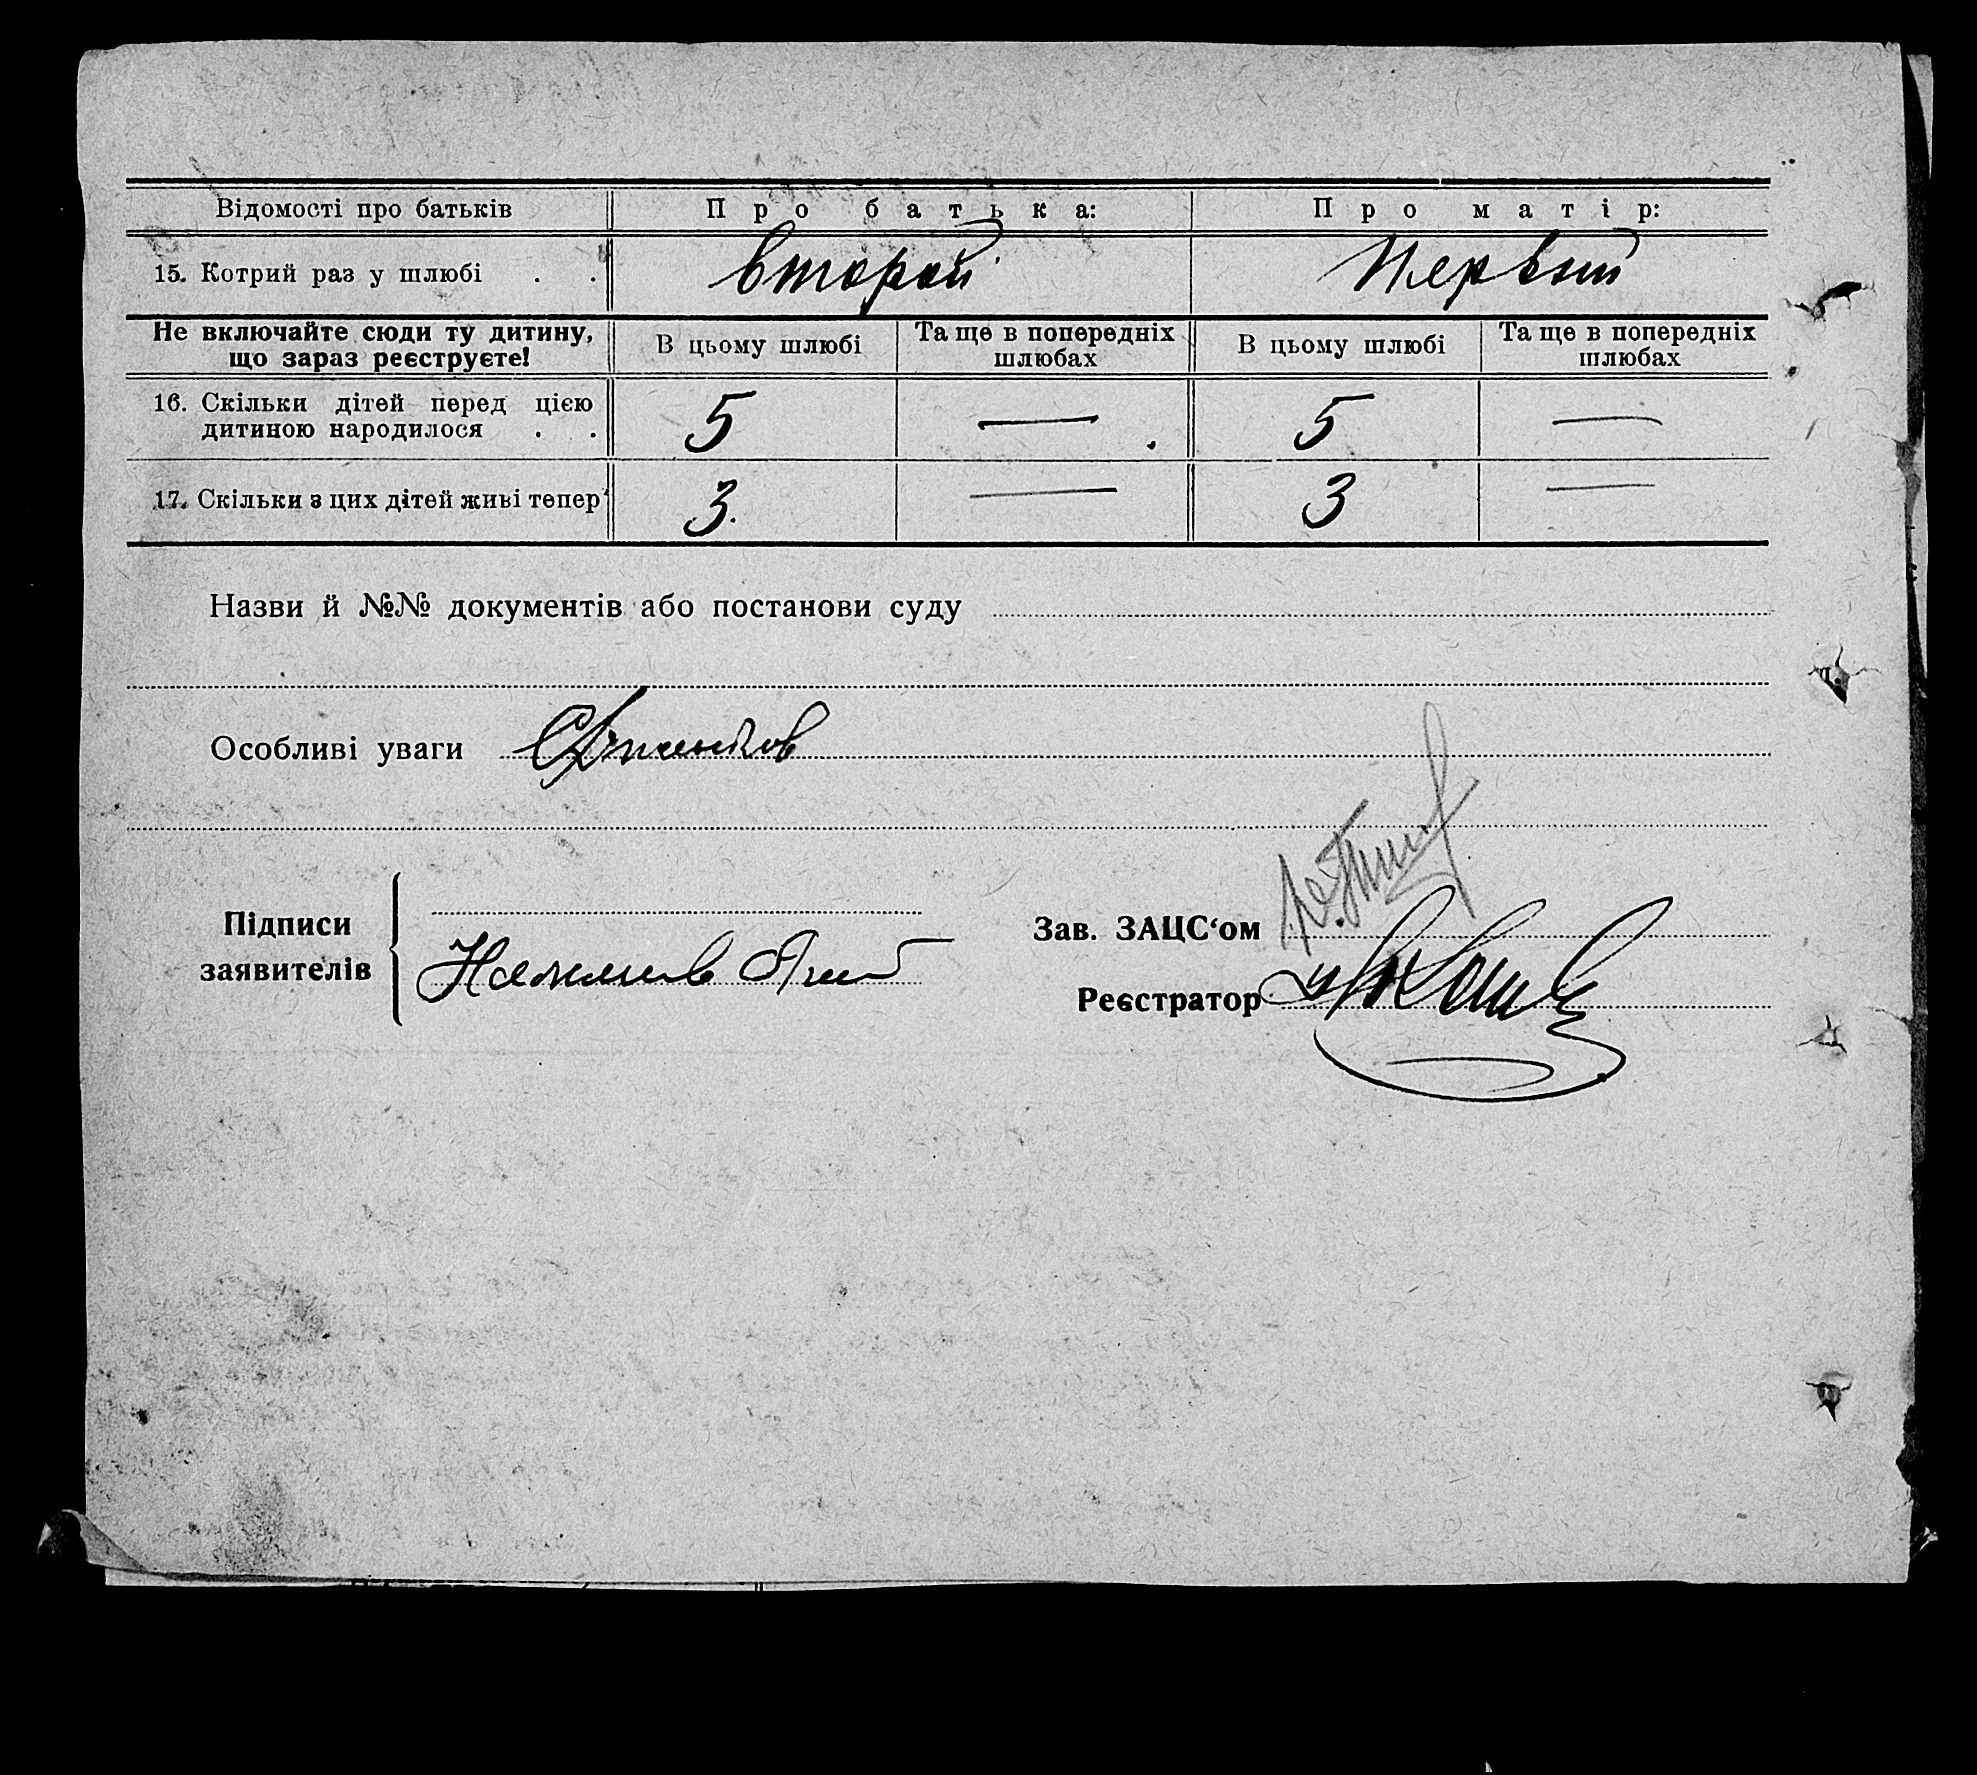 Відомості про батьків Про батька: Про матір:
15. Котрий раз у шлюбі . . второй Первый
Не включайте сюди ту дитину, що зараз реєструєте! В цьому шлюбі Та ще в попередніх шлюбах В цьому шлюбі Та ще в попередніх шлюбах
16. Скільки дітей перед цією
дитиною народилося . . 5 — 5 —
17. Скільки з цих дітей живі тепер 3. — 3 —
Назви й №№ документів або постанови суду
Особливі уваги
Підписи
заявителів
Зав. ЗАЦС‘ом
Реєстратор